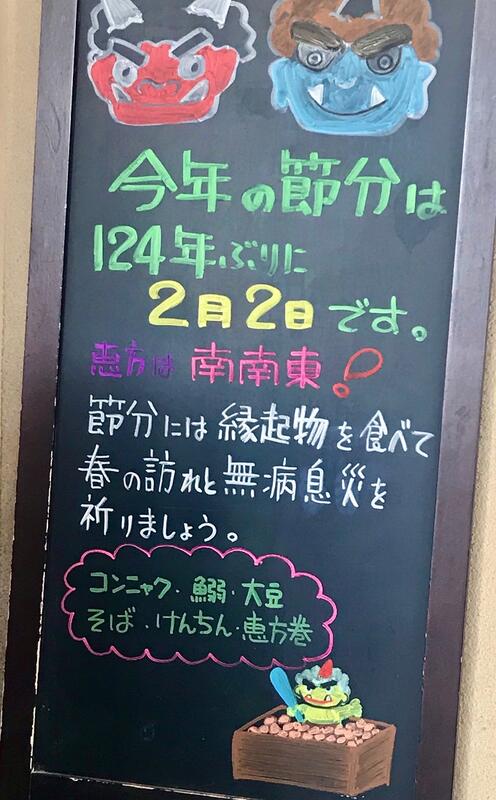 今年の節分は
124年ぶりに
2月2日です。
恵方は 南南東!
節分には縁起物を食べて
春の訪れと無病息災を
祈りましょう。
コンニャク・鰯・大豆
そば・けんちん・恵方巻